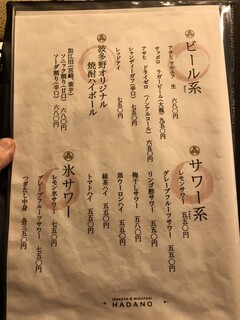 ビール系
アサヒ マルエフ 生 六八〇円
サッポロ ラガービール(大瓶) 七五〇円
アサヒ ドライゼロ(ノンアルコール)
シャンディーガフ(辛口) 七五〇円
レッドアイ 七五〇円
波多野オリジナル
焼酎ハイボール
加江田(宮崎、芋子)
ソニック割り(甘口) 六八〇円
ソーダ割り(辛口) 六八〇円
サワー系
レモンサワー 五五〇円
グレープフルーツサワー 五五〇円
リンゴ酢サワー 五五〇円
梅干しサワー 五五〇円
黒ウーロンハイ 五五〇円
緑茶ハイ 五五〇円
トマトハイ 五五〇円
氷サワー
レモン氷サワー 七五〇円
グレープフルーツサワー 七五〇円
つぎたし中身 各三五〇円
IZAKAYA & MIZUTAKI
HADANO